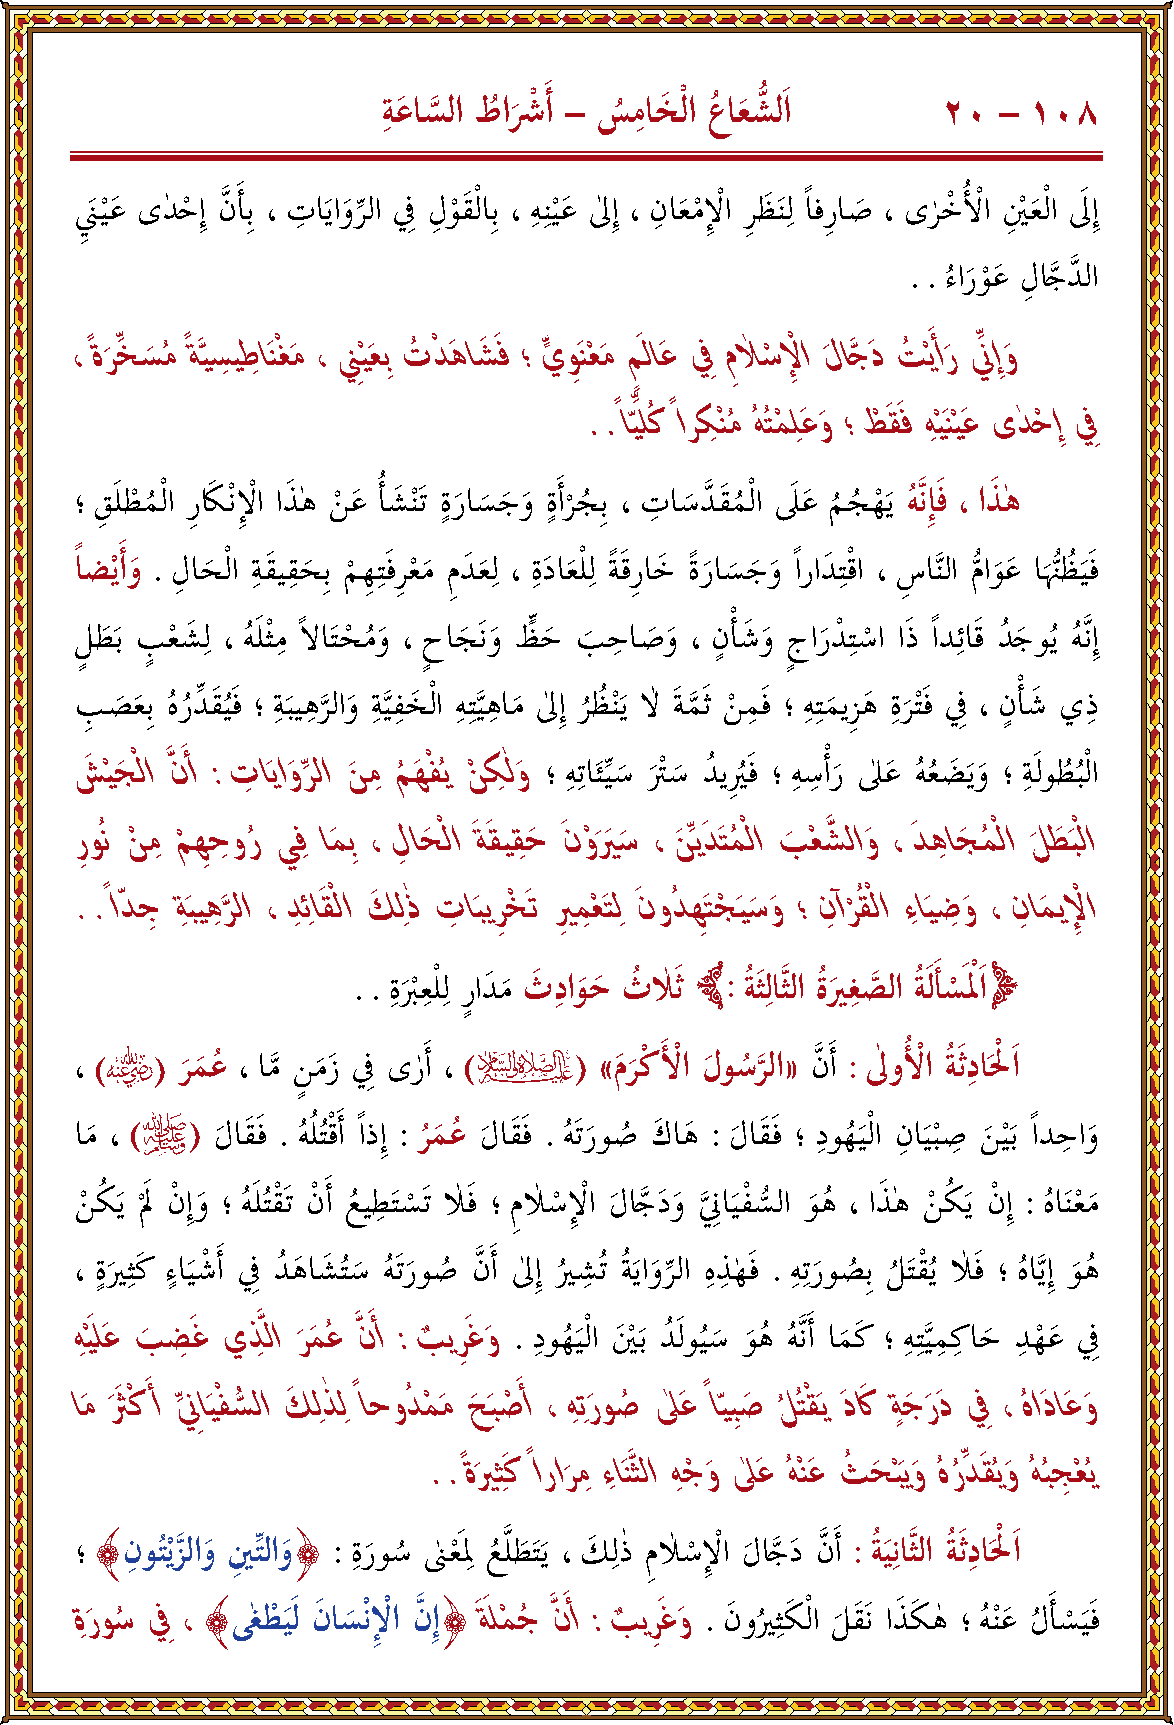 ١٠٨ – ٢٠ اَلشُّعَاعُ الْخَامِسُ – أَشْرَاطُ السَّاعَةِ
إِلَى الْعَيْنِ الْأُخْرٰى ، صَارِفاً لِنَظَرِ الْإِمْعَانِ ، إِلٰى عَيْنِهِ ، بِالْقَوْلِ فِي الرِّوَايَاتِ ، بِأَنَّ إِحْدٰى عَيْنَيِ
الدَّجَّالِ عَوْرَاءُ . .
وَإِنِّي رَأَيْتُ دَجَّالَ الْإِسْلَامِ فِي عَالَمٍ مَعْنَوِيٍّ ؛ فَشَاهَدْتُ بِعَيْنِي ، مَغْنَاطِيسِيَّةً مُسَخِّرَةً ،
فِي إِحْدٰى عَيْنَيْهِ فَقَطْ ؛ وَعَلِمْتُهُ مُنْكِراً كُلِّيّاً . .
هٰذَا ، فَإِنَّهُ يَهْجُمُ عَلَى الْمُقَدَّسَاتِ ، بِجُرْأَةٍ وَجَسَارَةٍ تَنْشَأُ عَنْ هٰذَا الْإِنْكَارِ الْمُطْلَقِ ؛
فَيَظُنُّهَا عَوَامُّ النَّاسِ ، اقْتِدَاراً وَجَسَارَةً خَارِقَةً لِلْعَادَةِ ، لِعَدَمِ مَعْرِفَتِهِمْ بِحَقِيقَةِ الْحَالِ . وَأَيْضاً
إِنَّهُ يُوجَدُ قَائِداً ذَا اسْتِدْرَاجٍ وَشَأْنٍ ، وَصَاحِبَ حَظٍّ وَنَجَاحٍ ، وَمُحْتَالاً مِثْلَهُ ، لِشَعْبٍ بَطَلٍ
ذِي شَأْنٍ ، فِي فَتْرَةِ هَزِيمَتِهِ ؛ فَمِنْ ثَمَّةَ لَا يَنْظُرُ إِلٰى مَاهِيَّتِهِ الْخَفِيَّةِ وَالرَّهِيبَةِ ؛ فَيُقَدِّرُهُ بِعَصَبِ
الْبُطُولَةِ ؛ وَيَضَعُهُ عَلٰى رَأْسِهِ ؛ فَيُرِيدُ سَتْرَ سَيِّئَاتِهِ ؛ وَلٰكِنْ يُفْهَمُ مِنَ الرِّوَايَاتِ : أَنَّ الْجَيْشَ
الْبَطَلَ الْمُجَاهِدَ ، وَالشَّعْبَ الْمُتَدَيِّنَ ، سَيَرَوْنَ حَقِيقَةَ الْحَالِ ، بِمَا فِي رُوحِهِمْ مِنْ نُورِ
الْإِيمَانِ ، وَضِيَاءِ الْقُرْآنِ ؛ وَسَيَجْتَهِدُونَ لِتَعْمِيرِ تَخْرِيبَاتِ ذٰلِكَ الْقَائِدِ ، الرَّهِيبَةِ جِدّاً . .
﴿اَلْمَسْأَلَةُ الصَّغِيرَةُ الثَّالِثَةُ :﴾ ثَلَاثُ حَوَادِثَ مَدَارٍ لِلْعِبْرَةِ . .
اَلْحَادِثَةُ الْأُولٰى : أَنَّ «الرَّسُولَ الْأَكْرَمَ» (عَلَيْهِ الصَّلَاةُ وَالسَّلَامُ) ، أَرٰى فِي زَمَنٍ مَّا ، عُمَرَ (رَضِيَ اللهُ عَنْهُ) ،
وَاحِداً بَيْنَ صِبْيَانِ الْيَهُودِ ؛ فَقَالَ : هَاكَ صُورَتَهُ . فَقَالَ عُمَرُ : إِذاً أَقْتُلُهُ . فَقَالَ (ﷺ) ، مَا
مَعْنَاهُ : إِنْ يَكُنْ هٰذَا ، هُوَ السُّفْيَانِيَّ وَدَجَّالَ الْإِسْلَامِ ؛ فَلَا تَسْتَطِيعُ أَنْ تَقْتُلَهُ ؛ وَإِنْ لَمْ يَكُنْ
هُوَ إِيَّاهُ ؛ فَلَا يُقْتَلُ بِصُورَتِهِ . فَهٰذِهِ الرِّوَايَةُ تُشِيرُ إِلٰى أَنَّ صُورَتَهُ سَتُشَاهَدُ فِي أَشْيَاءٍ كَثِيرَةٍ ،
فِي عَهْدِ حَاكِمِيَّتِهِ ؛ كَمَا أَنَّهُ هُوَ سَيُولَدُ بَيْنَ الْيَهُودِ . وَغَرِيبٌ : أَنَّ عُمَرَ الَّذِي غَضِبَ عَلَيْهِ
وَعَادَاهُ ، فِي دَرَجَةٍ كَادَ يَقْتُلُ صَبِيّاً عَلٰى صُورَتِهِ ، أَصْبَحَ مَمْدُوحاً لِذٰلِكَ السُّفْيَانِيِّ أَكْثَرَ مَا
يُعْجِبُهُ وَيُقَدِّرُهُ وَيَبْحَثُ عَنْهُ عَلٰى وَجْهِ الثَّنَاءِ مِرَاراً كَثِيرَةً . .
اَلْحَادِثَةُ الثَّانِيَةُ : أَنَّ دَجَّالَ الْإِسْلَامِ ذٰلِكَ ، يَتَطَلَّعُ لِمَعْنٰى سُورَةِ : ﴿وَالتِّينِ وَالزَّيْتُونِ﴾ ؛
فَيَسْأَلُ عَنْهُ ؛ هٰكَذَا نَقَلَ الْكَثِيرُونَ . وَغَرِيبٌ : أَنَّ جُمْلَةَ ﴿إِنَّ الْإِنْسَانَ لَيَطْغٰى﴾ ، فِي سُورَةِ